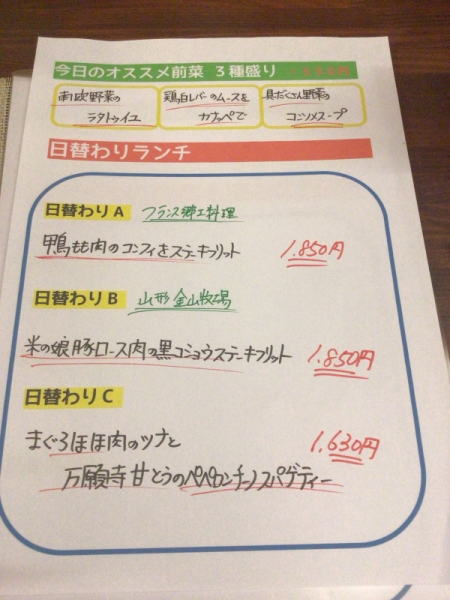 今日のオススメ前菜 3種盛り
南欧野菜の
ラタトゥイユ
鶏白レバーのムースを
カナッペで
具だくさん野菜の
コンソメスープ
日替わりランチ
日替わりA フランス郷土料理
鴨もも肉のコンフィをステーキフリット 1.850円
日替わりB 山形 金山牧場
米の娘豚ロース肉の黒コショウステーキフリット 1.850円
日替わりC
まぐろほほ肉のツナと 1.630円
万願寺甘とうのペペロンチーノスパゲティー